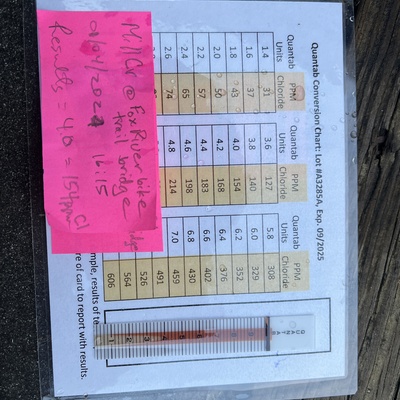 Quantab Conversion Chart: Lot #A3285A, Exp. 09/2025
Quantab PPM Quantab PPM Quantab PPM
Units Chloride Units Chloride Units Chloride
1.4 31 3.6 127 5.8 308
1.6 37 3.8 140 6.0 329
1.8 43 4.0 154 6.2 352
2.0 50 4.2 168 6.4 376
2.2 57 4.4 183 6.6 402
2.4 65 4.6 198 6.8 430
2.6 74 4.8 214 7.0 459
491
526
564
606
Mill Cr @ Fox River bike
trail bridge
16:15
Results = 4.0 = 154ppm Cl
mple, results of te
re of card to report with results.
QUANTAB
1 2 3 4 5 6 7 8